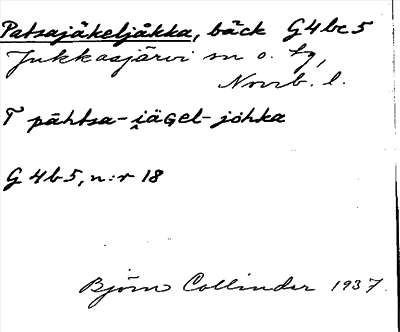 Patsajäkeljåkka, bäck G4bc5
Jukkasjärvi sn o. tg,
Norrb. l.
T pāhtsa-i̯äGel-johka
G 4b5, n:r 18
Björn Collinder 1937.